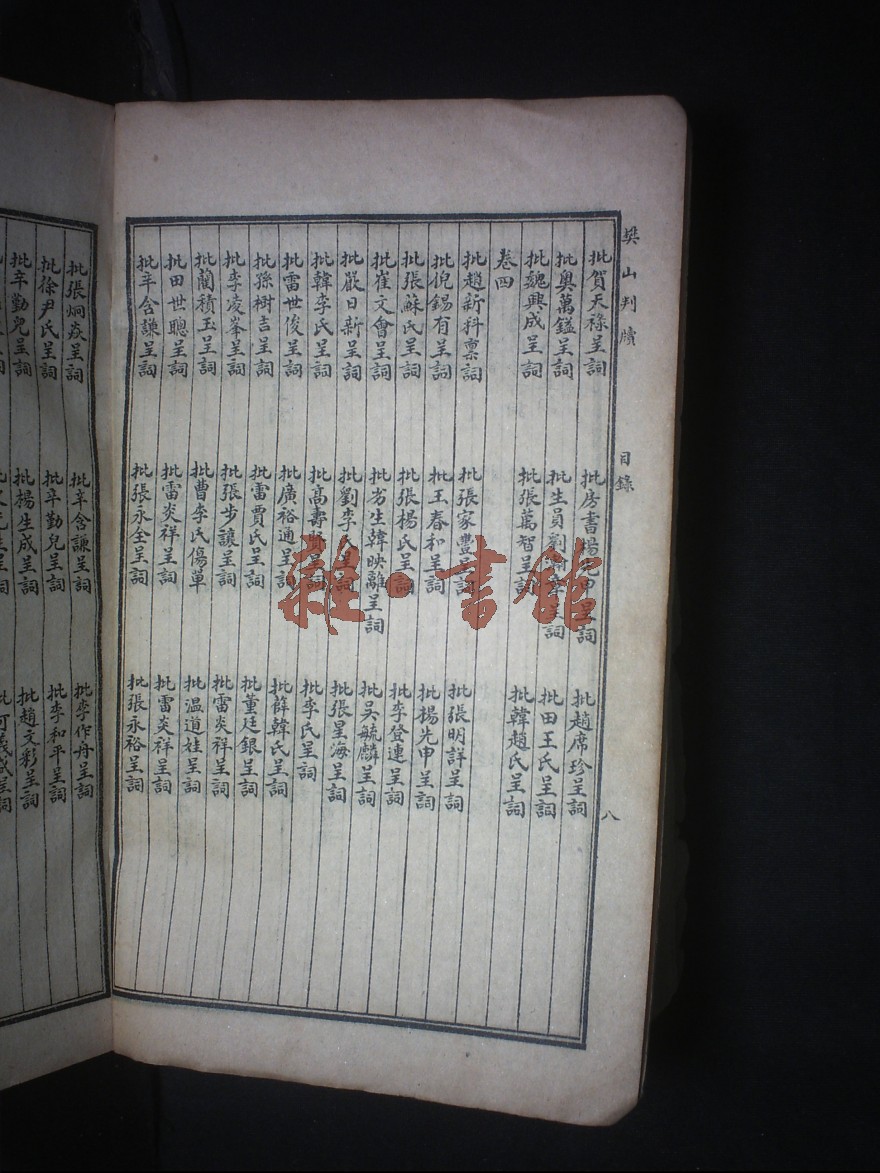 樊山判牘
目錄
八
批賀天祿呈詞
批房書楊
呈詞
批趙席珍呈詞
批奧萬鎰呈詞
批生員劉
呈詞
批田王氏呈詞
批魏興成呈詞
批張萬智呈詞
批韓趙氏呈詞
卷四
批趙新科稟詞
批張家豐呈詞
批張明詳呈詞
批倪錫有呈詞
批王春和呈詞
批楊先甲呈詞
批張蘇氏呈詞
批張楊氏呈詞
批李登連呈詞
批崔文會呈詞
批劣生韓映離呈詞
批吳毓麟呈詞
批嚴日新呈詞
批劉李氏呈詞
批張星海呈詞
批韓李氏呈詞
批高壽賢呈詞
批李氏呈詞
批雷世俊呈詞
批廣裕通呈詞
批薛韓氏呈詞
批孫樹吉呈詞
批雷賈氏呈詞
批董廷銀呈詞
批李凌峯呈詞
批張步讓呈詞
批雷炎祥呈詞
批藺積玉呈詞
批曹李氏傷單
批溫道娃呈詞
批田世聰呈詞
批雷炎祥呈詞
批雷炎祥呈詞
批辛含謙呈詞
批張永全呈詞
批張永裕呈詞
批張炯焱呈詞
批辛含謙呈詞
批李作舟呈詞
批徐尹氏呈詞
批辛勤兒呈詞
批李和平呈詞
批辛勤兒呈詞
批楊生成呈詞
批趙文彩呈詞
雜·書館